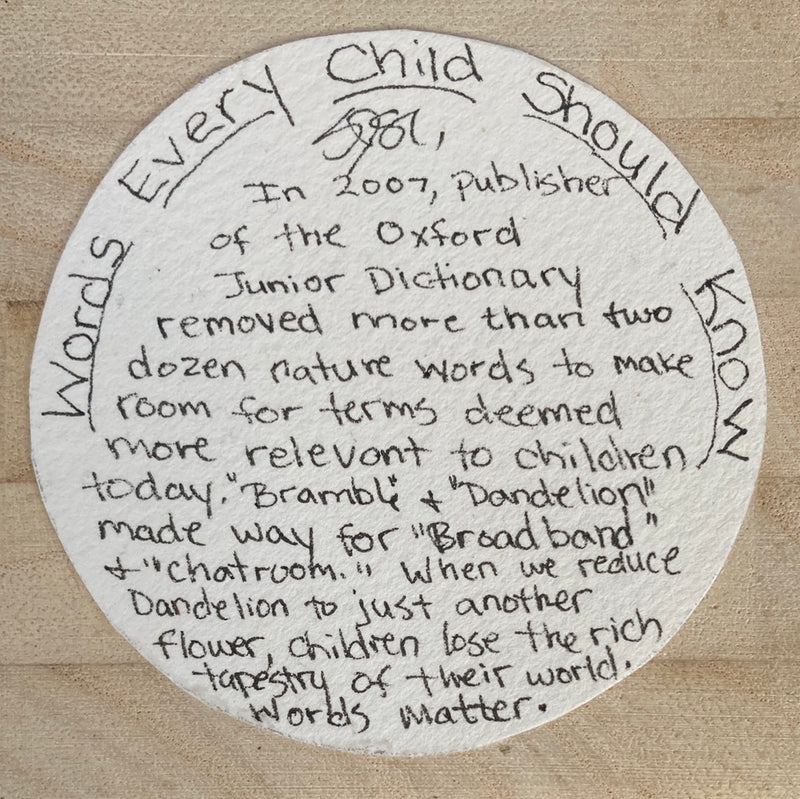 Words Every Child Should Know
In 2007, publisher
of the Oxford
Junior Dictionary
removed more than two
dozen nature words to make
room for terms deemed
more relevant to children
today. "Bramble" + "Dandelion"
made way for "Broadband"
+ "Chatroom." When we reduce
Dandelion to just another
flower, children lose the rich
tapestry of their world.
Words matter.